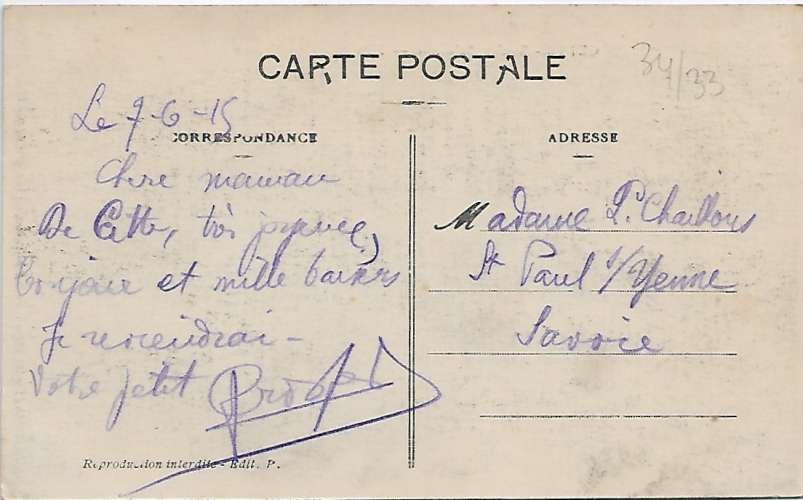 CARTE POSTALE
34/33
Le 7-6-15
CORRESPONDANCE
Chere maman
De Cette, très
Bonjour et mille baisers
Je reviendrai -
Votre petit
Reproduction interdite - Edit. P.
ADRESSE
Madame P. Chaillous
St Paul s/Yenne
Savoie